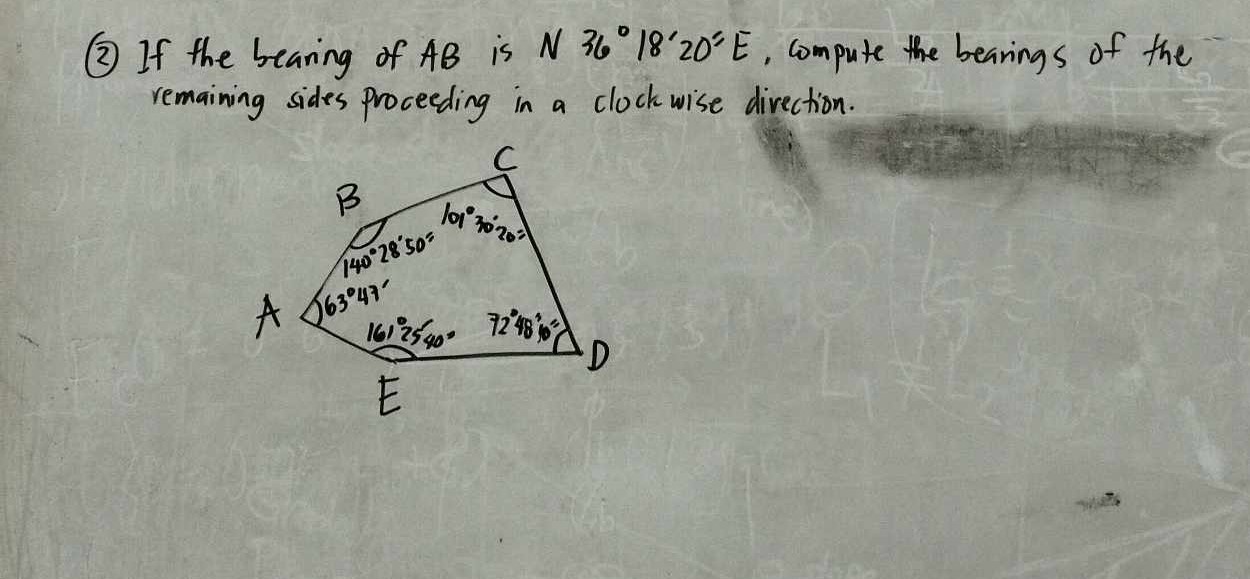 ② If the bearing of AB is N 36° 18' 20" E, compute the bearings of the
remaining sides proceeding in a clockwise direction.
C
B
101° 30' 20"
140° 28' 50"
A
63° 47'
161° 25' 40"
72° 48' 10"
D
E